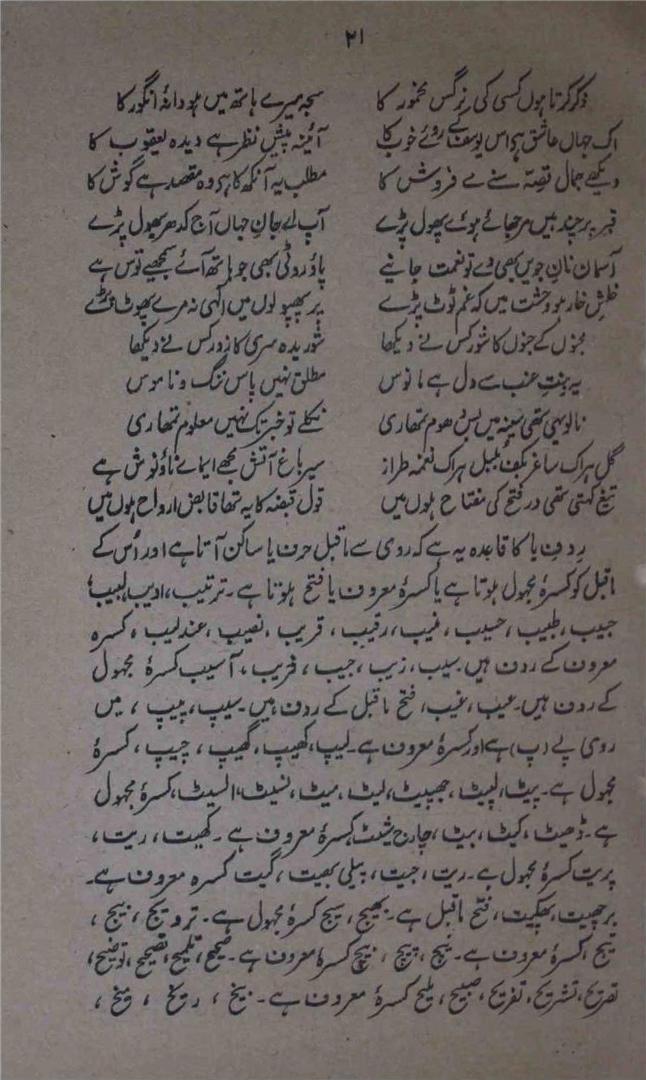 ۲۱
ذکر کرتا ہوں کسی کی نرگس مخمور کا سبحہ میرے ہاتھ میں ہو دانۂ انگور کا
اک جہاں عاشق ہو اس یوسف کے روئے خوب کا آئنہ پیش نظر ہے دیدہ یعقوب کا
دیکھے جمال قصہ سنے مے فروش کا مطلب یہ آنکھ کا ہو وہ مقصد ہے گوش کا
قبر پر چند ہیں مرجھائے ہوئے پھول پڑے آپ اے جانِ جہاں آج کدھر بھول پڑے
آسمان نانِ جویں بھی دے تو نعمت جانیے پاؤ روٹی بھی جو ہاتھ آئے سمجھیے توس ہے
خلش خار ہو وحشت میں کہ غم ٹوٹ پڑے پر پھپولوں میں الٰہی نہ مرے پھوٹ پڑے
مجنوں کے جنوں کا شور کس نے دیکھا شوریدہ سری کا زور کس نے دیکھا
یہ بنت عنب سے دل ہے مانوس مطلق نہیں پاس ننگ و ناموس
نالو یہی تھی سینہ میں بس دھوم تمھاری نکلے تو خبر تک نہیں معلوم تمھاری
گل ہر اک ساغر بکف بلبل ہر اک نغمہ طراز سیر باغ آتش مجھے ایمائے ناؤ نوش ہے
تیغ کہتی تھی در فتح کی مفتاح ہوں میں قول قبضہ کا یہ تھا قابض ارواح ہوں میں
ردفِ یا کا قاعدہ یہ ہے کہ روی سے ماقبل حرف یا ساکن آتا ہے اور اُس کے
ماقبل کو کسرۂ مجہول ہوتا ہے یا کسرۂ معروف یا فتح ہوتا ہے۔ ترتیب، ادیب، لبیب،
حبیب، طبیب، حسیب، غیب، رقیب، قریب، نصیب، عندلیب، کسرہ
معروف کے ردف ہیں۔ سیب، زیب، جیب، فریب، آسیب کسرۂ مجہول
کے ردف ہیں۔ عیب، غیب، فتح ماقبل کے ردف ہیں۔ سیپ، پیپ، میں
روی پے (پ) ہے اور کسرۂ معروف ہے۔ لیپ، کھیپ، گھیپ، چیپ، کسرۂ
مجہول ہے۔ پیٹ، لپیٹ، جھپیٹ، لیٹ، میٹ، نسیٹ، السیٹ، کسرۂ مجہول
ہے۔ ڈھیٹ، کیٹ، بیٹ، چارج شیٹ، کسرۂ معروف ہے۔ کھیت، ریت،
پریت کسرۂ مجہول ہے۔ ریت، جیت، پیلی بھیت، گیت کسرہ معروف ہے۔
برچھیت، پھکیت، فتح ماقبل ہے۔ بھیج، سیج کسرۂ مجہول ہے۔ ترویج، بیج،
تیج، کسرۂ معروف ہے۔ بیچ، پیچ، بیچ کسرۂ معروف ہے۔ صحیح، تلمیح، تصحیح، توضیح،
تصریح، تشریح، تفریح، صبیح، ملیح کسرۂ معروف ہے۔ بیخ، ریخ، میخ،